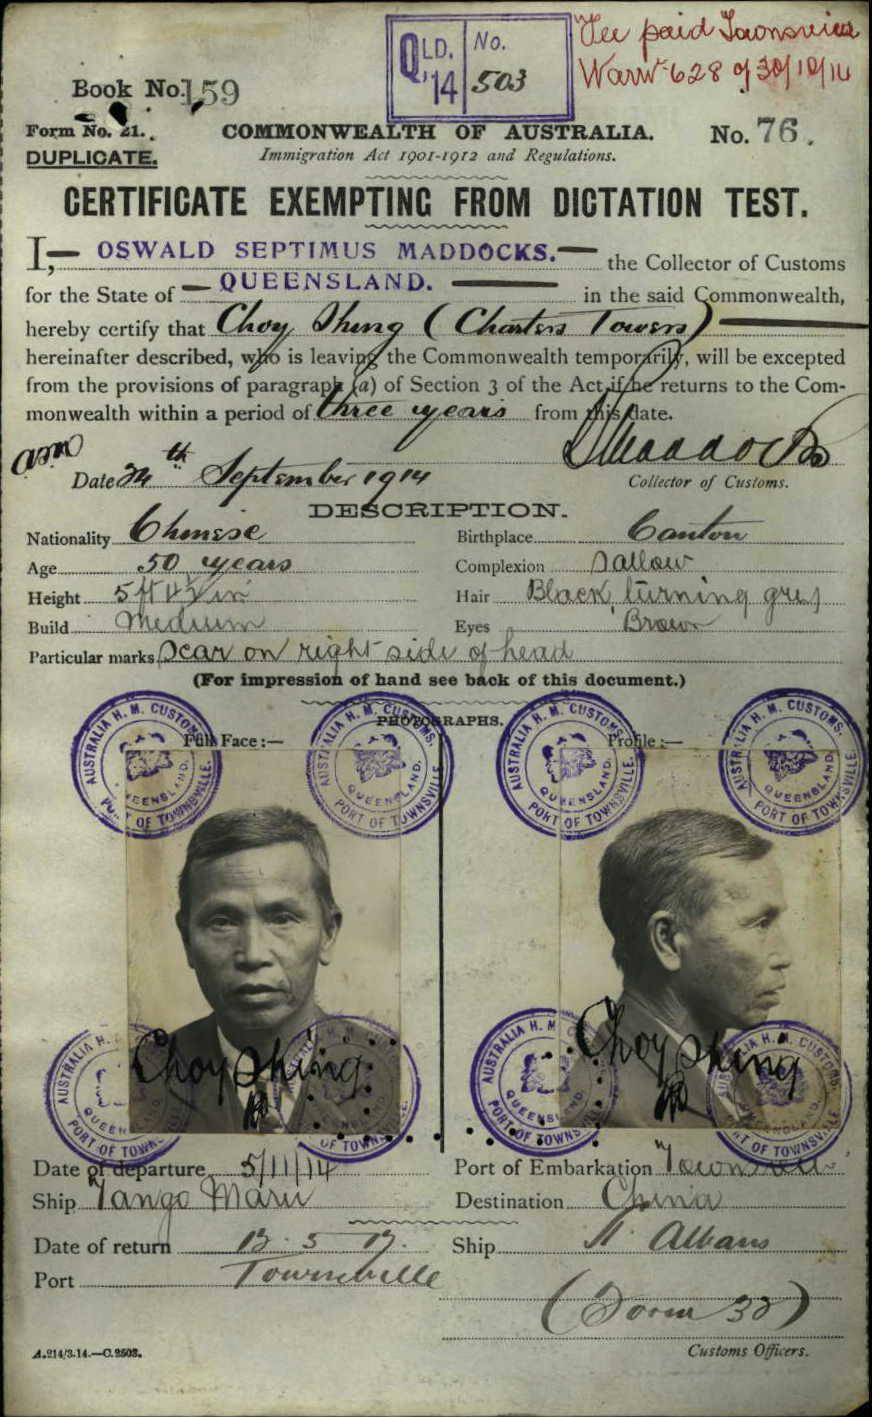 QLD. No.
'14 503
Fee paid Townsville
Warw 628 of 30/10/14
Book No. 159
Form No. 21.
COMMONWEALTH OF AUSTRALIA.
No. 76.
DUPLICATE.
Immigration Act 1901-1912 and Regulations.
CERTIFICATE EXEMPTING FROM DICTATION TEST.
I, OSWALD SEPTIMUS MADDOCKS. the Collector of Customs
for the State of QUEENSLAND. in the said Commonwealth,
hereby certify that Choy Shing (Charters Towers)
hereinafter described, who is leaving the Commonwealth temporarily, will be excepted
from the provisions of paragraph (a) of Section 3 of the Act if he returns to the Com-
monwealth within a period of three years from this date.
Maddocks
Date 24th September 1914
Collector of Customs.
DESCRIPTION.
Nationality Chinese Birthplace Canton
Age 50 years Complexion Sallow
Height 5 ft 4½ in Hair Black, turning grey
Build Medium Eyes Brown
Particular marks Scar on right side of head
(For impression of hand see back of this document.)
PHOTOGRAPHS.
Full Face :— Profile :—
AUSTRALIA H. M. CUSTOMS. QUEENSLAND. PORT OF TOWNSVILLE.
AUSTRALIA H. M. CUSTOMS. QUEENSLAND. PORT OF TOWNSVILLE.
AUSTRALIA H. M. CUSTOMS. QUEENSLAND. PORT OF TOWNSVILLE.
AUSTRALIA H. M. CUSTOMS. QUEENSLAND. PORT OF TOWNSVILLE.
Choy Shing Choy Shing
Date of departure 5/11/14 Port of Embarkation Townsville
Ship Tango Maru Destination China
Date of return 13. 5 17. Ship St Albans
Port Townsville
(Form 32)
A.214/3.14.—C.2503.
Customs Officers.